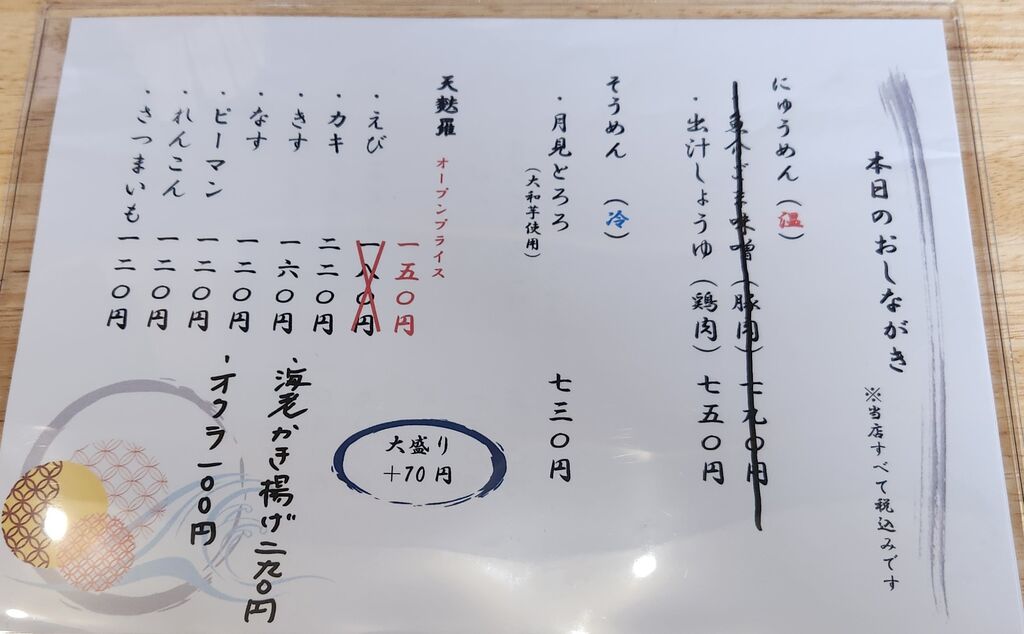 本日のおしながき ※当店すべて税込みです
にゅうめん（温）
・魚介ごま味噌（豚肉）七九〇円
・出汁しょうゆ（鶏肉）七五〇円
そうめん（冷）
・月見とろろ 七三〇円
（大和芋使用）
大盛り
+70円
天麩羅 オープンプライス
一五〇円
・えび 一八〇円
・カキ 二二〇円
・きす 一六〇円
・なす 一二〇円
・ピーマン 一二〇円
・れんこん 一二〇円
・さつまいも 一二〇円
・海老かき揚げ 二九〇円
・オクラ 一〇〇円